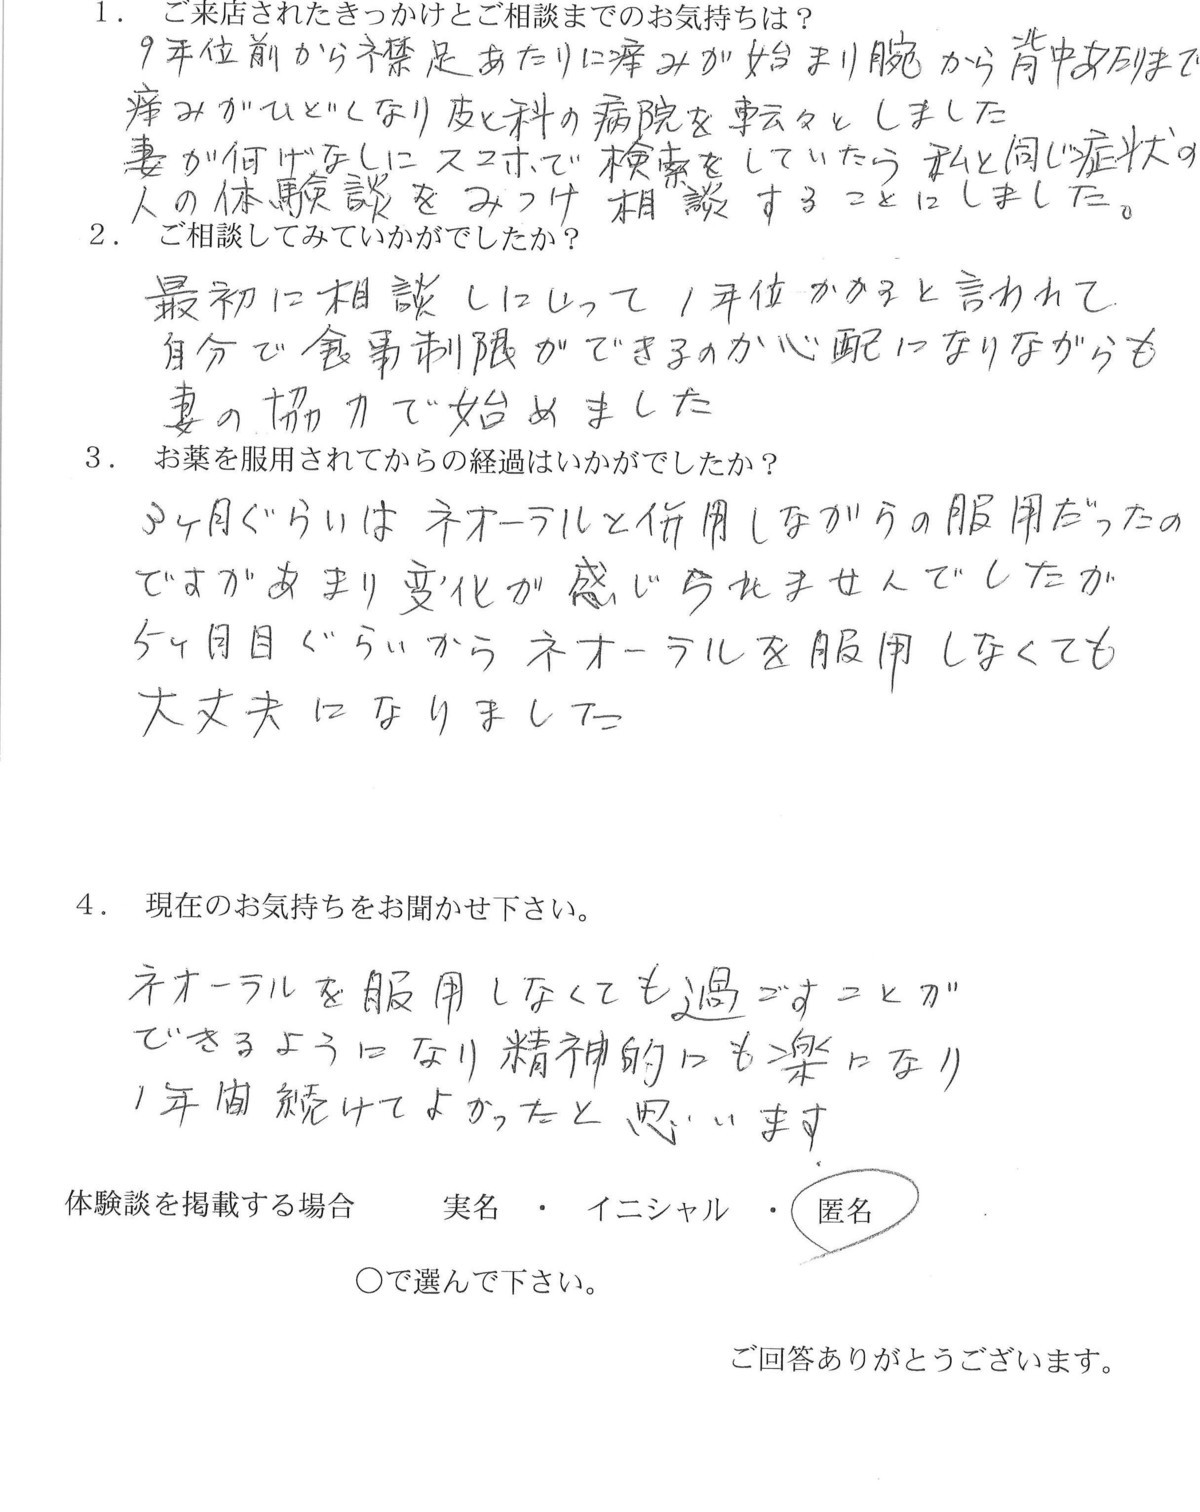 １． ご来店されたきっかけとご相談までのお気持ちは？
9年位前から襟足あたりに痒みが始まり腕から背中あたりまで
痒みがひどくなり皮ふ科の病院を転々としました
妻が何げなしにスマホで検索をしていたら私と同じ症状の
人の体験談をみつけ相談することにしました。
２． ご相談してみていかがでしたか？
最初に相談しにいって1年位かかると言われて
自分で食事制限ができるのか心配になりながらも
妻の協力で始めました
３． お薬を服用されてからの経過はいかがでしたか？
3ヶ月ぐらいはネオーラルと併用しながらの服用だったの
ですがあまり変化が感じられませんでしたが
5ヶ月目ぐらいからネオーラルを服用しなくても
大丈夫になりました
４． 現在のお気持ちをお聞かせ下さい。
ネオーラルを服用しなくても過ごすことが
できるようになり精神的にも楽になり
1年間続けてよかったと思います
体験談を掲載する場合 実名 ・ イニシャル ・ 匿名
〇で選んで下さい。
ご回答ありがとうございます。